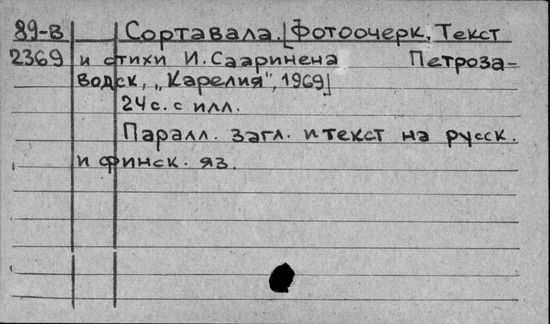 89-В Сортавала. [Фотоочерк. Текст
2369 и стихи И. Сааринена Петроза-
водск, „Карелия", 1969]
24 с. с илл.
Паралл. загл. и текст на русск.
и финск. яз.